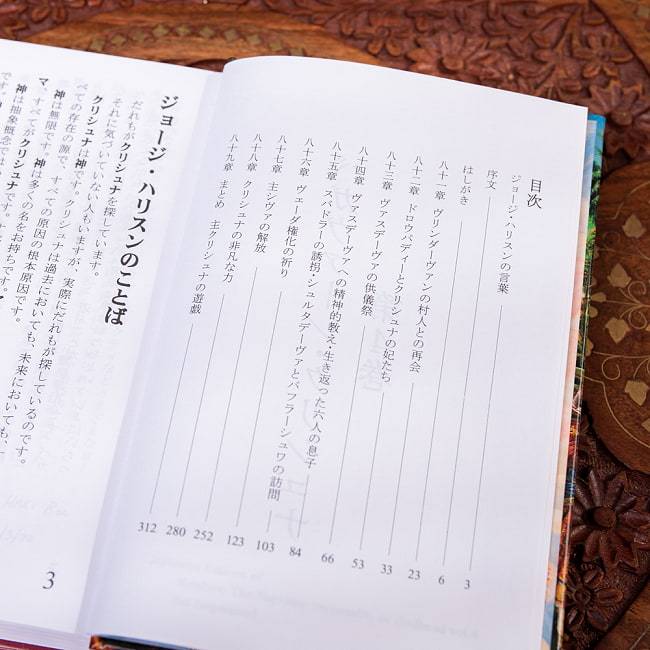 目次
ジョージ・ハリスンの言葉 3
序文 6
はしがき 23
八十一章 ヴリンダーヴァンの村人との再会 33
八十二章 ドロウパディーとクリシュナの妃たち 53
八十三章 ヴァスデーヴァの供儀祭 66
八十四章 ヴァスデーヴァへの精神的教え・生き返った六人の息子 84
八十五章 スバドラーの誘拐・シュルタデーヴァとバフラーシュワの訪問 103
八十六章 ヴェーダ権化の祈り 123
八十七章 主シヴァの解放 252
八十八章 クリシュナの非凡な力 280
八十九章 まとめ 主クリシュナの遊戯 312
ジョージ・ハリスンのことば
だれもがクリシュナを探しています。
それと気づいていない人もいますが、実際にだれもが探しているのです。
クリシュナは神です。クリシュナは過去においても、未来においても、
べての存在の源で、すべての原因の根本原因です。
神は無限です。神は多くの名をお持ちです。
マ、すべてがクリシュナです。
神は抽象概念では
です。
3